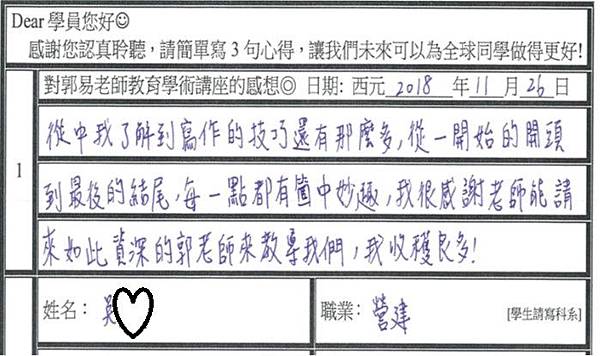 Dear 學員您好☺
感謝您認真聆聽，請簡單寫 3 句心得，讓我們未來可以為全球同學做得更好!
對郭易老師教育學術講座的感想◎ 日期: 西元 2018 年 11 月 26 日
1
從中我了解到寫作的技巧還有那麼多，從一開始的開頭
到最後的結尾，每一點都有箇中妙趣，我很感謝老師能請
來如此資深的郭老師來教導我們，我收穫良多!
姓名： 吳 職業： 營建 [學生請寫科系]